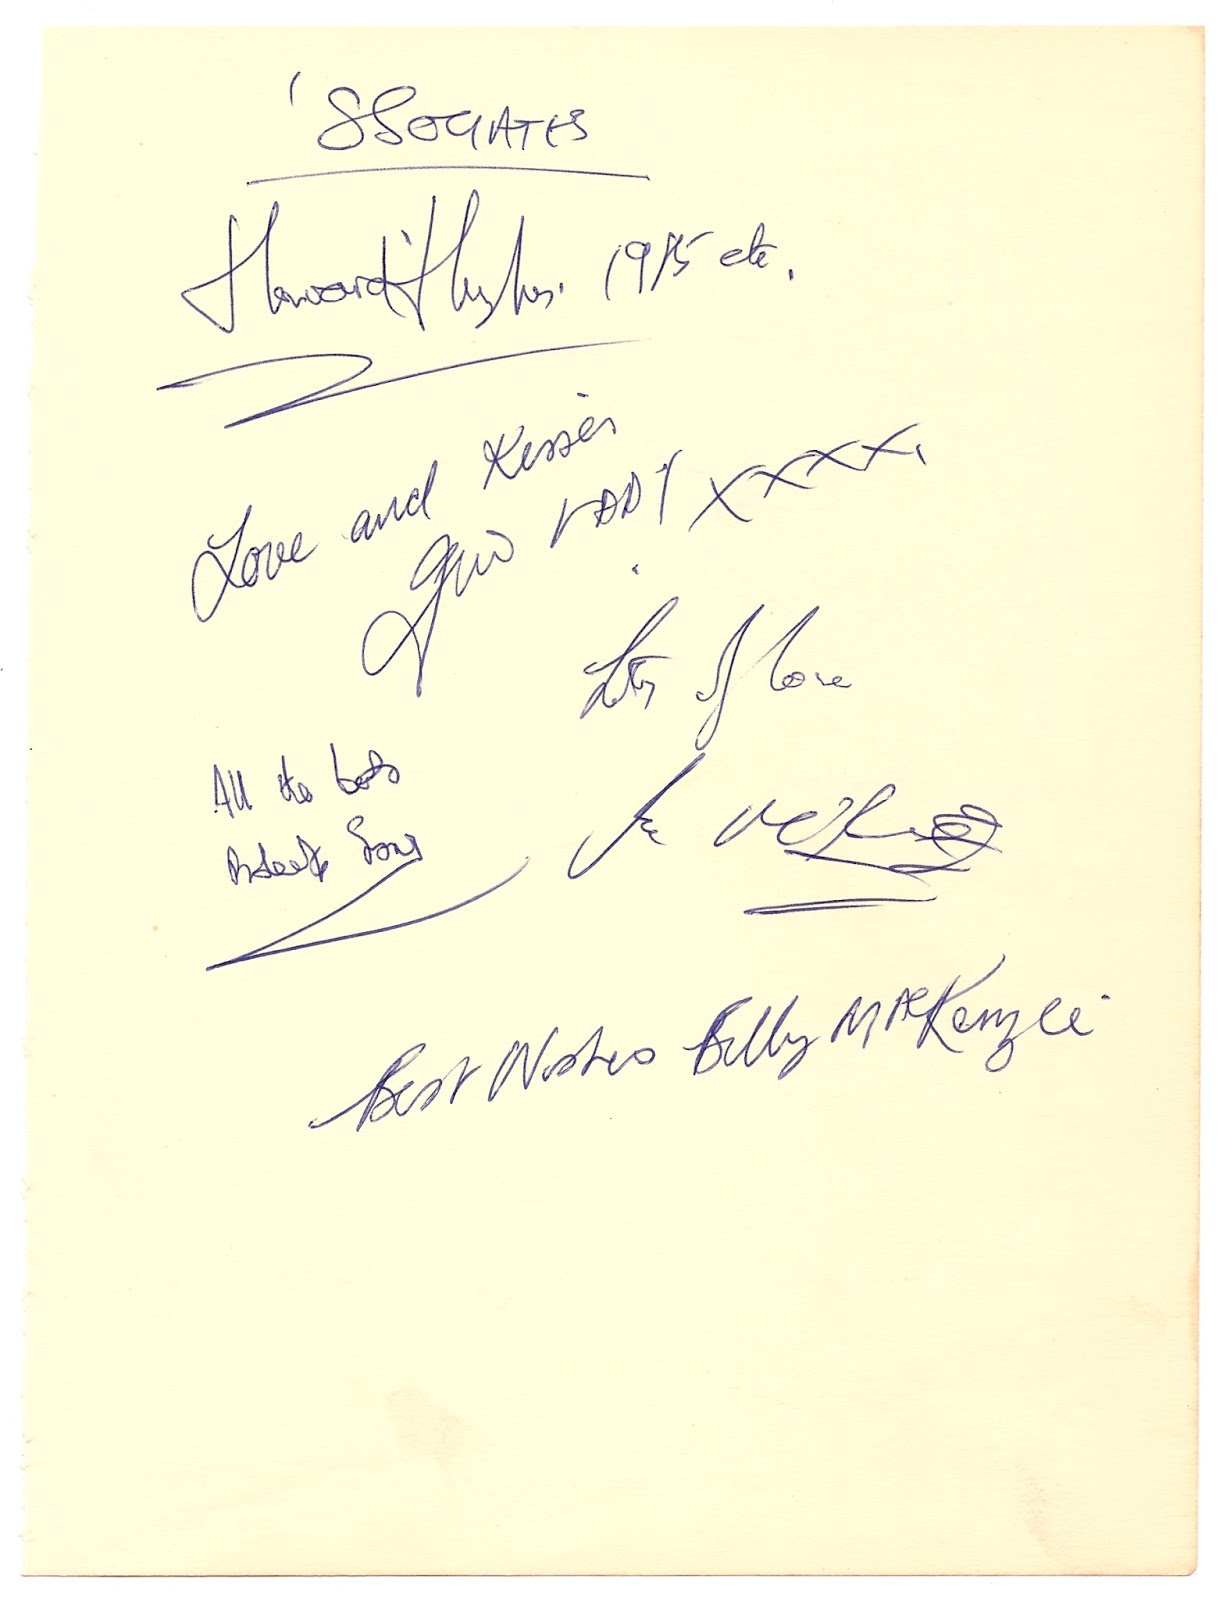 'SSOCIATES
Howard Hughes. 1985 etc.
Love and Kisses
XXXXX
Lots of love
All the best
Best Wishes Billy MacKenzie